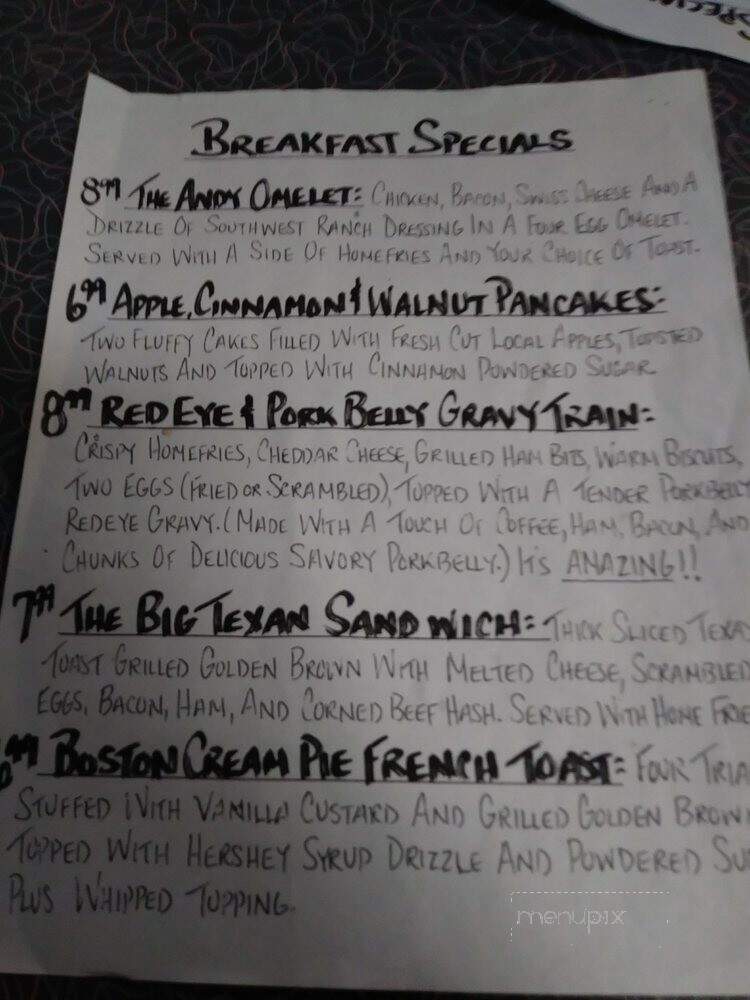 BREAKFAST SPECIALS
8.99 THE ANDY OMELET: CHICKEN, BACON, SWISS CHEESE AND A
DRIZZLE OF SOUTHWEST RANCH DRESSING IN A FOUR EGG OMELET.
SERVED WITH A SIDE OF HOMEFRIES AND YOUR CHOICE OF TOAST.
6.99 APPLE, CINNAMON & WALNUT PANCAKES:
TWO FLUFFY CAKES FILLED WITH FRESH CUT LOCAL APPLES, TOASTED
WALNUTS AND TOPPED WITH CINNAMON POWDERED SUGAR
8.99 RED EYE & PORK BELLY GRAVY TRAIN:
CRISPY HOMEFRIES, CHEDDAR CHEESE, GRILLED HAM BITS, WARM BISCUITS,
TWO EGGS (FRIED OR SCRAMBLED), TOPPED WITH A TENDER PORKBELLY
REDEYE GRAVY. (MADE WITH A TOUCH OF COFFEE, HAM, BACON, AND
CHUNKS OF DELICIOUS SAVORY PORKBELLY.) IT'S AMAZING!!
7.99 THE BIG TEXAN SANDWICH: THICK SLICED TEXAS
TOAST GRILLED GOLDEN BROWN WITH MELTED CHEESE, SCRAMBLED
EGGS, BACON, HAM, AND CORNED BEEF HASH. SERVED WITH HOME FRIE
BOSTON CREAM PIE FRENCH TOAST: FOUR TRIA
STUFFED WITH VANILLA CUSTARD AND GRILLED GOLDEN BROWN
TOPPED WITH HERSHEY SYRUP DRIZZLE AND POWDERED SU
PLUS WHIPPED TOPPING.
menupix